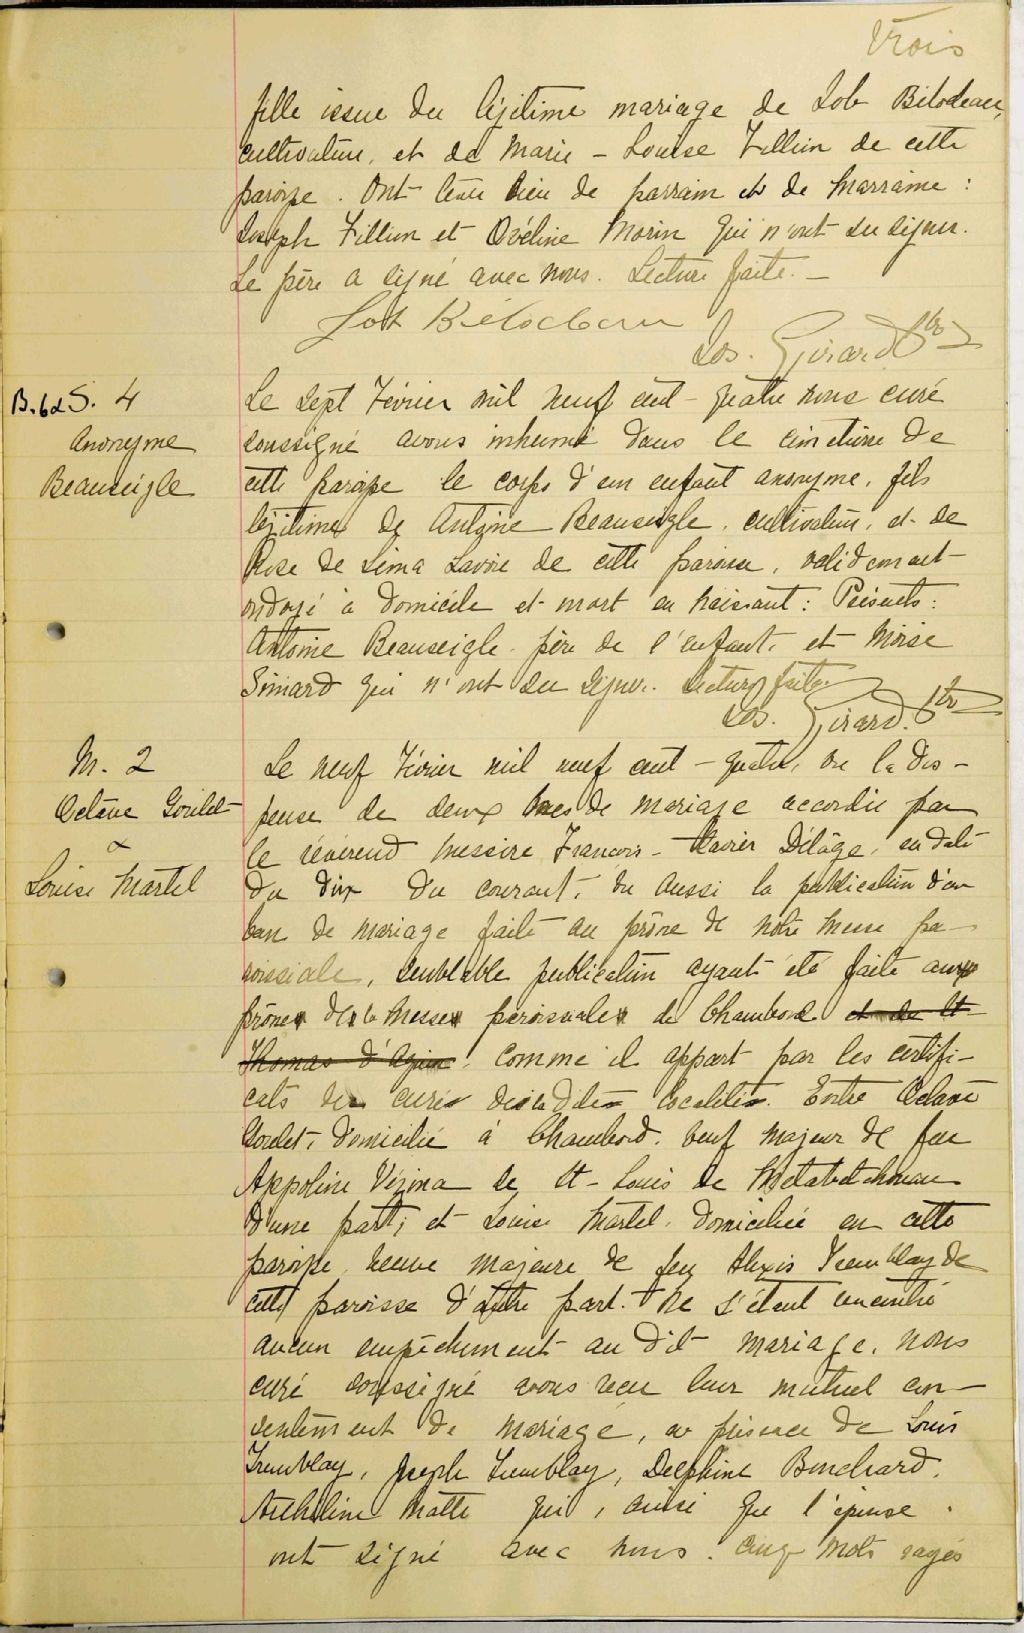 Trois
fille issue du légitime mariage de Job Bilodeau,
cultivateur, et de Marie - Louise Fillion de cette
paroisse. Ont été parrain et de Marraine :
Joseph Fillion et Ovéline Morin qui n'ont su signer.
Le père a signé avec nous. Lecture faite. -
Job Bilodeau
Jos. Girard Ptre
B. 6 & S. 4
Anonyme
Beauseigle
Le sept Février mil neuf cent - quatre nous curé
soussigné avons inhumé dans le cimetière de
cette paroisse le corps d'un enfant anonyme, fils
légitime de Antoine Beauseigle, cultivateur, et de
Rose de Lima Lavoie de cette paroisse, validement
ondoyé à domicile et mort en naissant : Présents :
Antoine Beauseigle père de l'enfant, et Moïse
Simard qui n'ont su signer. Lecture faite.
Jos. Girard. Ptre
M. 2
Octave Goulet
&
Louise Martel
Le neuf Février mil neuf cent - quatre, vu la dis -
pense de deux bans de mariage accordée par
le révérend messire François - Xavier Délâge, en date
du dix du courant, vu aussi la publication d'un
ban de mariage faite au prône de notre messe pa -
roissiale, semblable publication ayant été faite aux
prônes de la Messe paroissiale de Chambord et de St
Thomas d'Aquin, comme il appert par les certifi -
cats des curés desdites localités. Entre Octave
Goulet, domicilié à Chambord, veuf majeur de feu
Appoline Vézina de St - Louis de Metabetchouan
d'une part, et Louise Martel, domiciliée en cette
paroisse, veuve majeure de feu Alexis Tremblay de
cette paroisse d'autre part. Ne s'étant rencontré
aucun empêchement au dit mariage, nous
curé soussigné avons reçu leur mutuel con -
sentement de mariage, en présence de Louis
Tremblay, Joseph Tremblay, Delphine Bouchard,
Matte qui, ainsi que l'épouse
ont signé avec nous. Cinq mots rayés